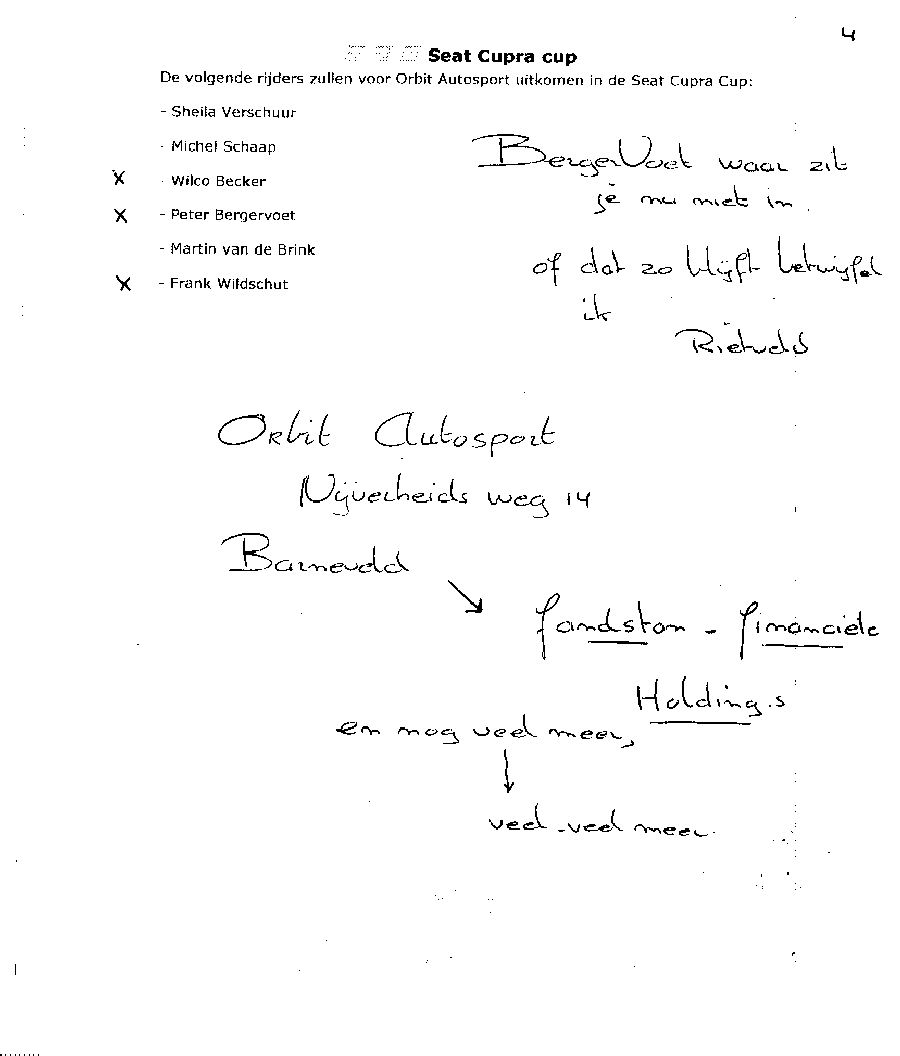 4
Seat Cupra cup
De volgende rijders zullen voor Orbit Autosport uitkomen in de Seat Cupra Cup:
- Sheila Verschuur
- Michel Schaap
X - Wilco Becker
X - Peter Bergervoet
- Martin van de Brink
X - Frank Wildschut
BergerVoet waar zit
je nu niet in.
of dat zo blijft betwijfel
ik
Rietveld
Orbit Autosport
Nijverheids weg 14
Barneveld
fandston - financiele
Holding.s
en nog veel meer,
veel - veel meer.